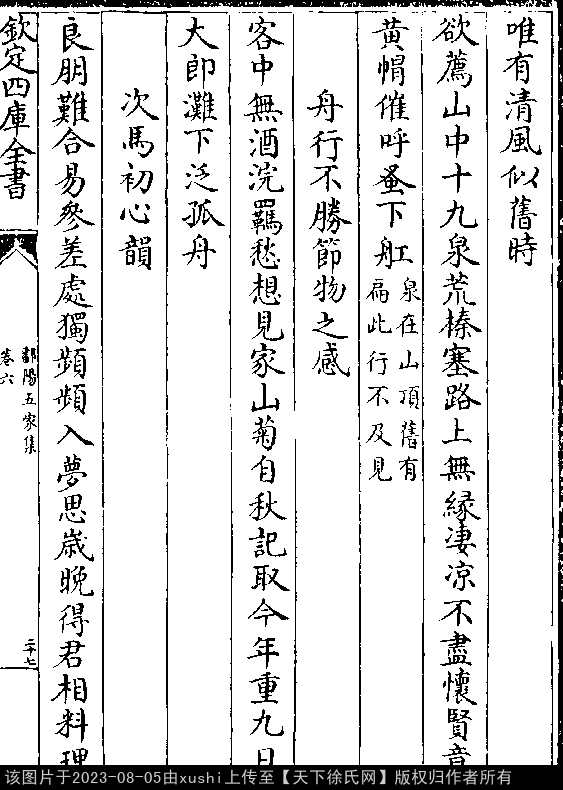 唯有清風似舊時
欲薦山中十九泉荒榛塞路上無緣淒凉不盡懷賢意
黄帽催呼蚤下舡泉在山頂舊有
扁此行不及見
舟行不勝節物之感
客中無酒浣羈愁想見家山菊自秋記取今年重九日
大郎灘下泛孤舟
次馬初心韻
良朋難合易參差處獨頻頻入夢思歳晚得君相料理
欽定四庫全書
鄱陽五家集
卷六
二十七
该图片于2023-08-05由xushi上传至【天下徐氏网】版权归作者所有